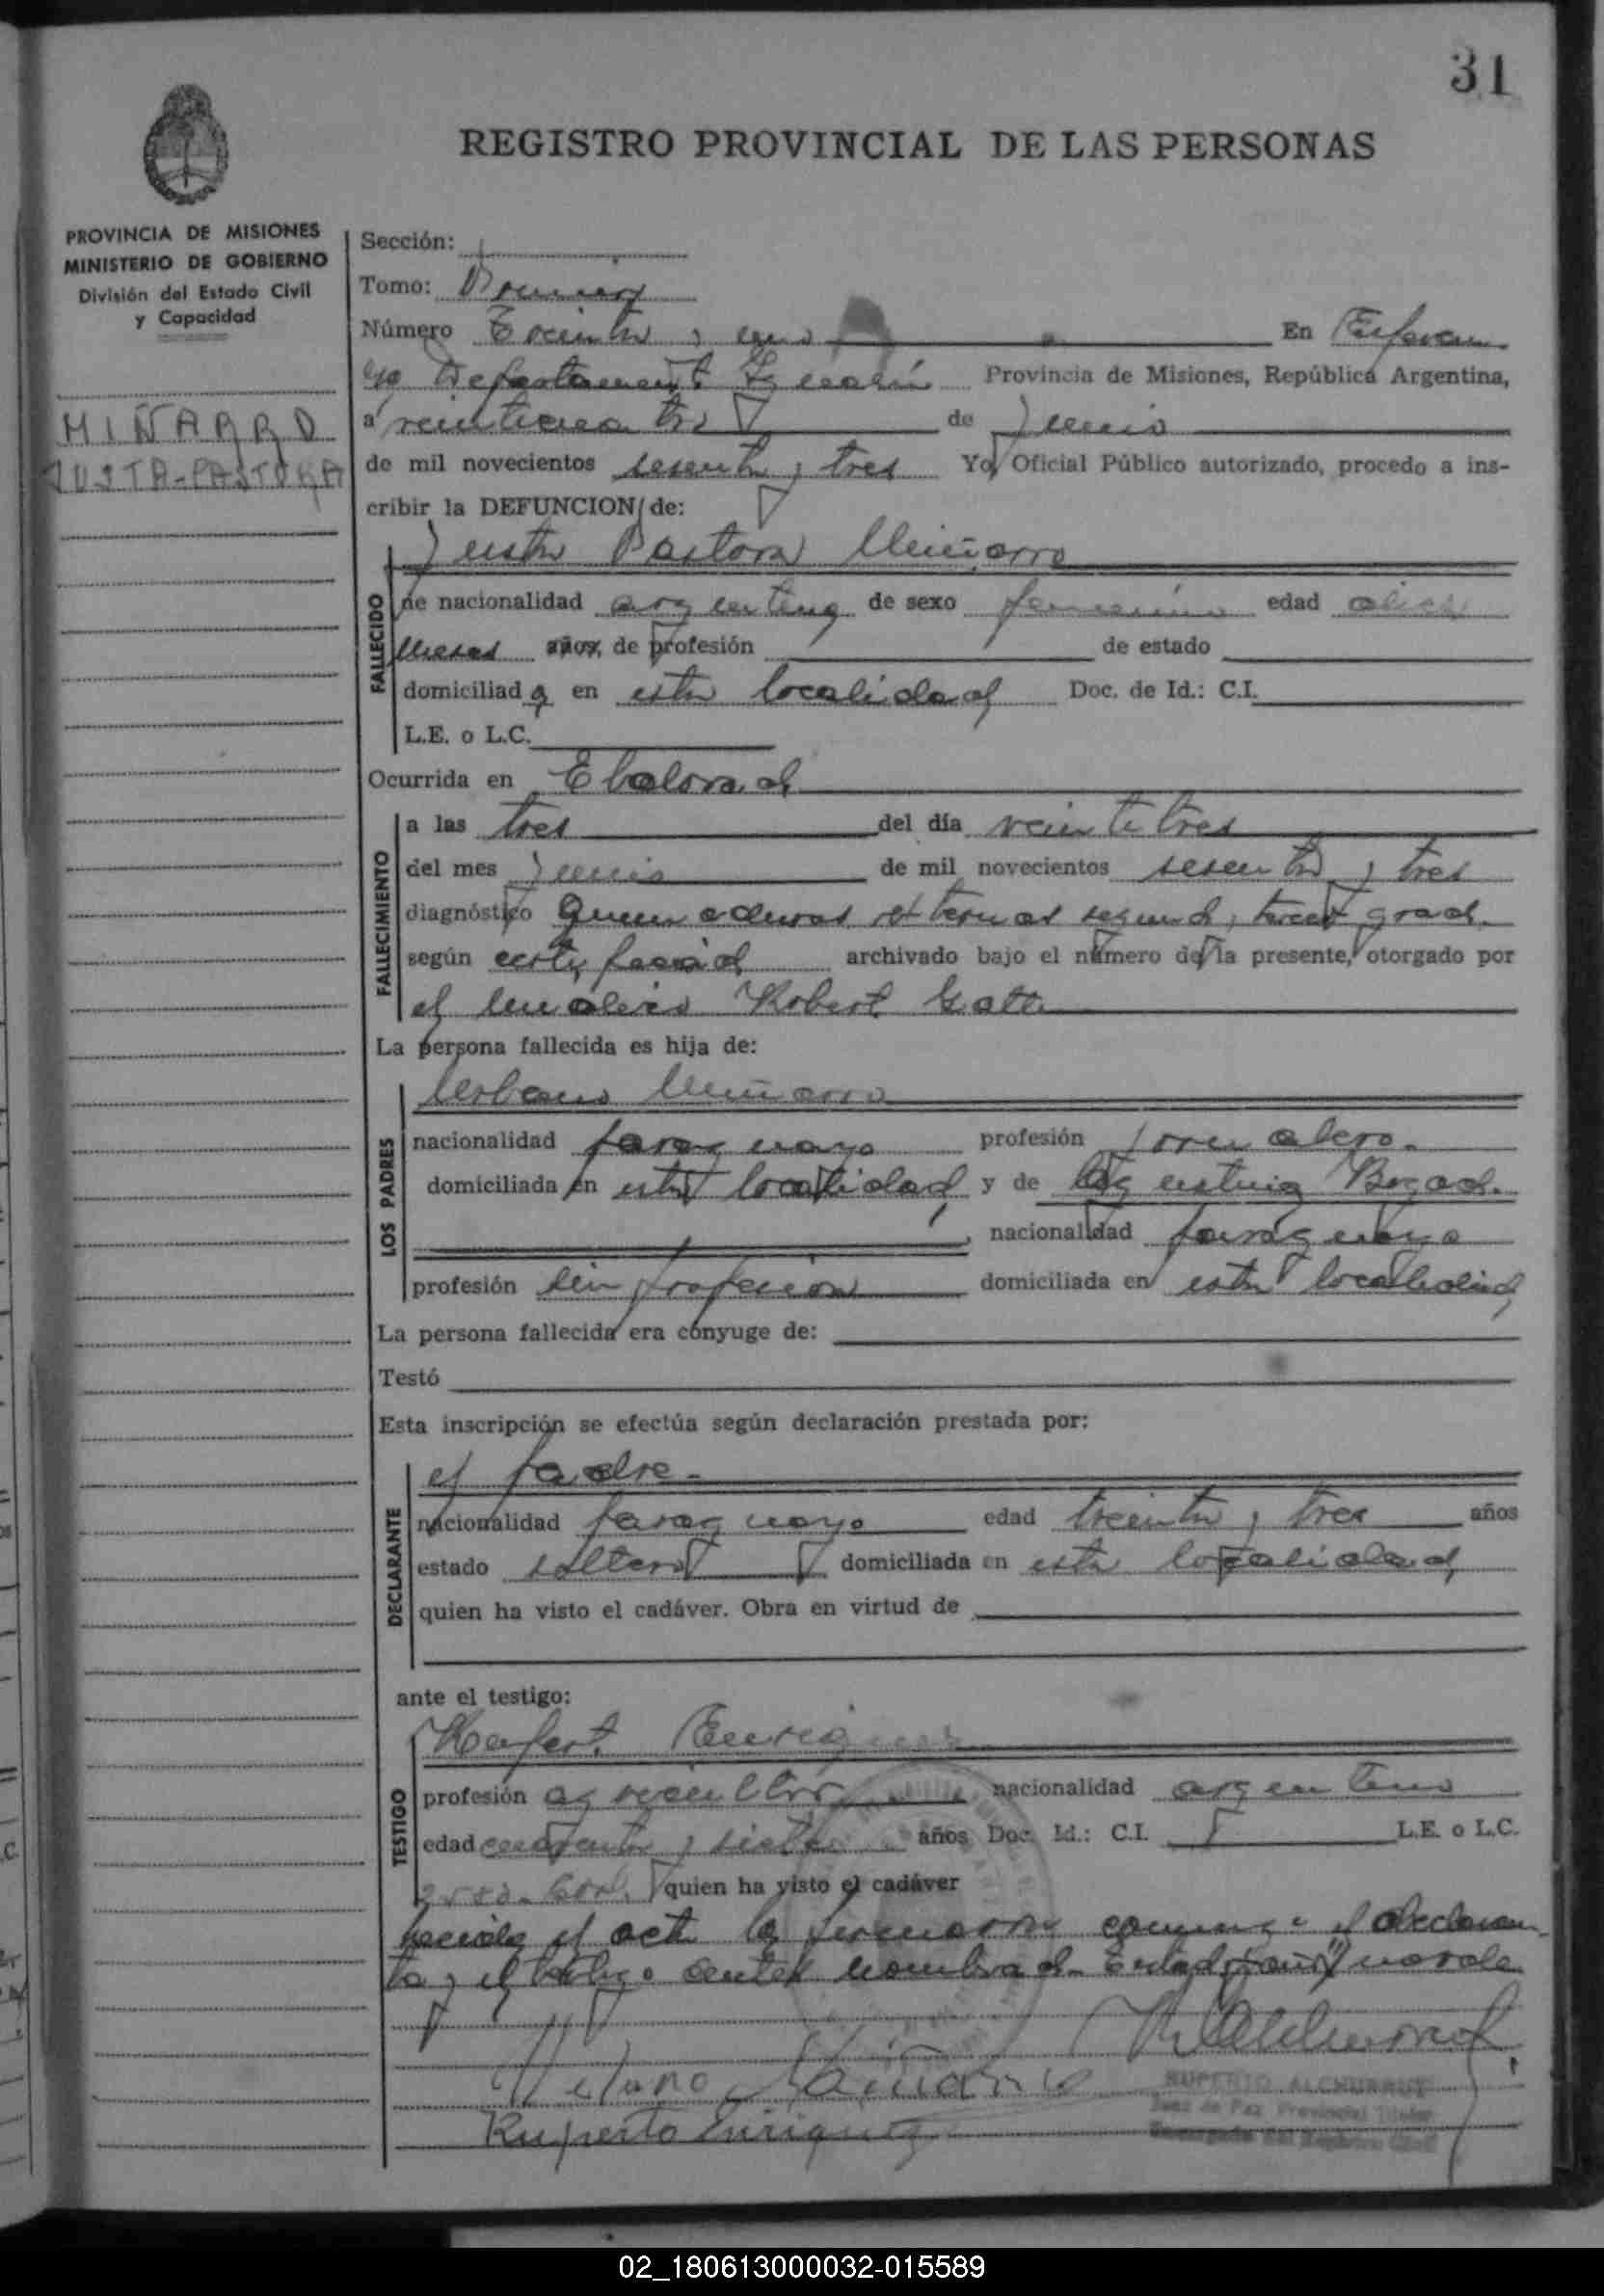 31
REGISTRO PROVINCIAL DE LAS PERSONAS
PROVINCIA DE MISIONES
MINISTERIO DE GOBIERNO
División del Estado Civil
y Capacidad
MIÑARRO
JUSTA-PASTORA
Sección:
Tomo: Primero
Número Treinta y uno En
Departamento Provincia de Misiones, República Argentina,
a veinticuatro de Junio
de mil novecientos sesenta y tres Yo, Oficial Público autorizado, procedo a ins-
cribir la DEFUNCION de:
Justa Pastora Miñarro
FALLECIDO
de nacionalidad argentina de sexo femenino edad
meses años, de profesión de estado
domiciliad a en esta localidad Doc. de Id.: C.I.
L.E. o L.C.
Ocurrida en Eldorado
FALLECIMIENTO
a las tres del día veintitres
del mes Junio de mil novecientos sesenta y tres
diagnóstico Quemaduras externas segundo y tercer grado.
según certificado archivado bajo el número de la presente, otorgado por
el médico Robert
La persona fallecida es hija de:
LOS PADRES
Urbano Miñarro
nacionalidad paraguayo profesión jornalero.
domiciliada en esta localidad y de
nacionalidad paraguaya
profesión sin profesion domiciliada en esta localidad
La persona fallecida era cónyuge de:
Testó
Esta inscripción se efectúa según declaración prestada por:
DECLARANTE
el padre.
nacionalidad paraguayo edad treinta y tres años
estado soltero domiciliada en esta localidad
quien ha visto el cadáver. Obra en virtud de
ante el testigo:
TESTIGO
Ruperto Enriquez
profesión agricultor nacionalidad argentino
edad cuarenta y siete años Doc. Id.: C.I. L.E. o L.C.
quien ha visto el cadáver
el acta la firmaron conmigo el declaran-
te y el testigo antes nombrado.
Miñarro
RUPERTO ALCHURRUT
Juez de Paz Provincial Titular
Encargado del Registro Civil
Ruperto Enriquez
02_180613000032-015589